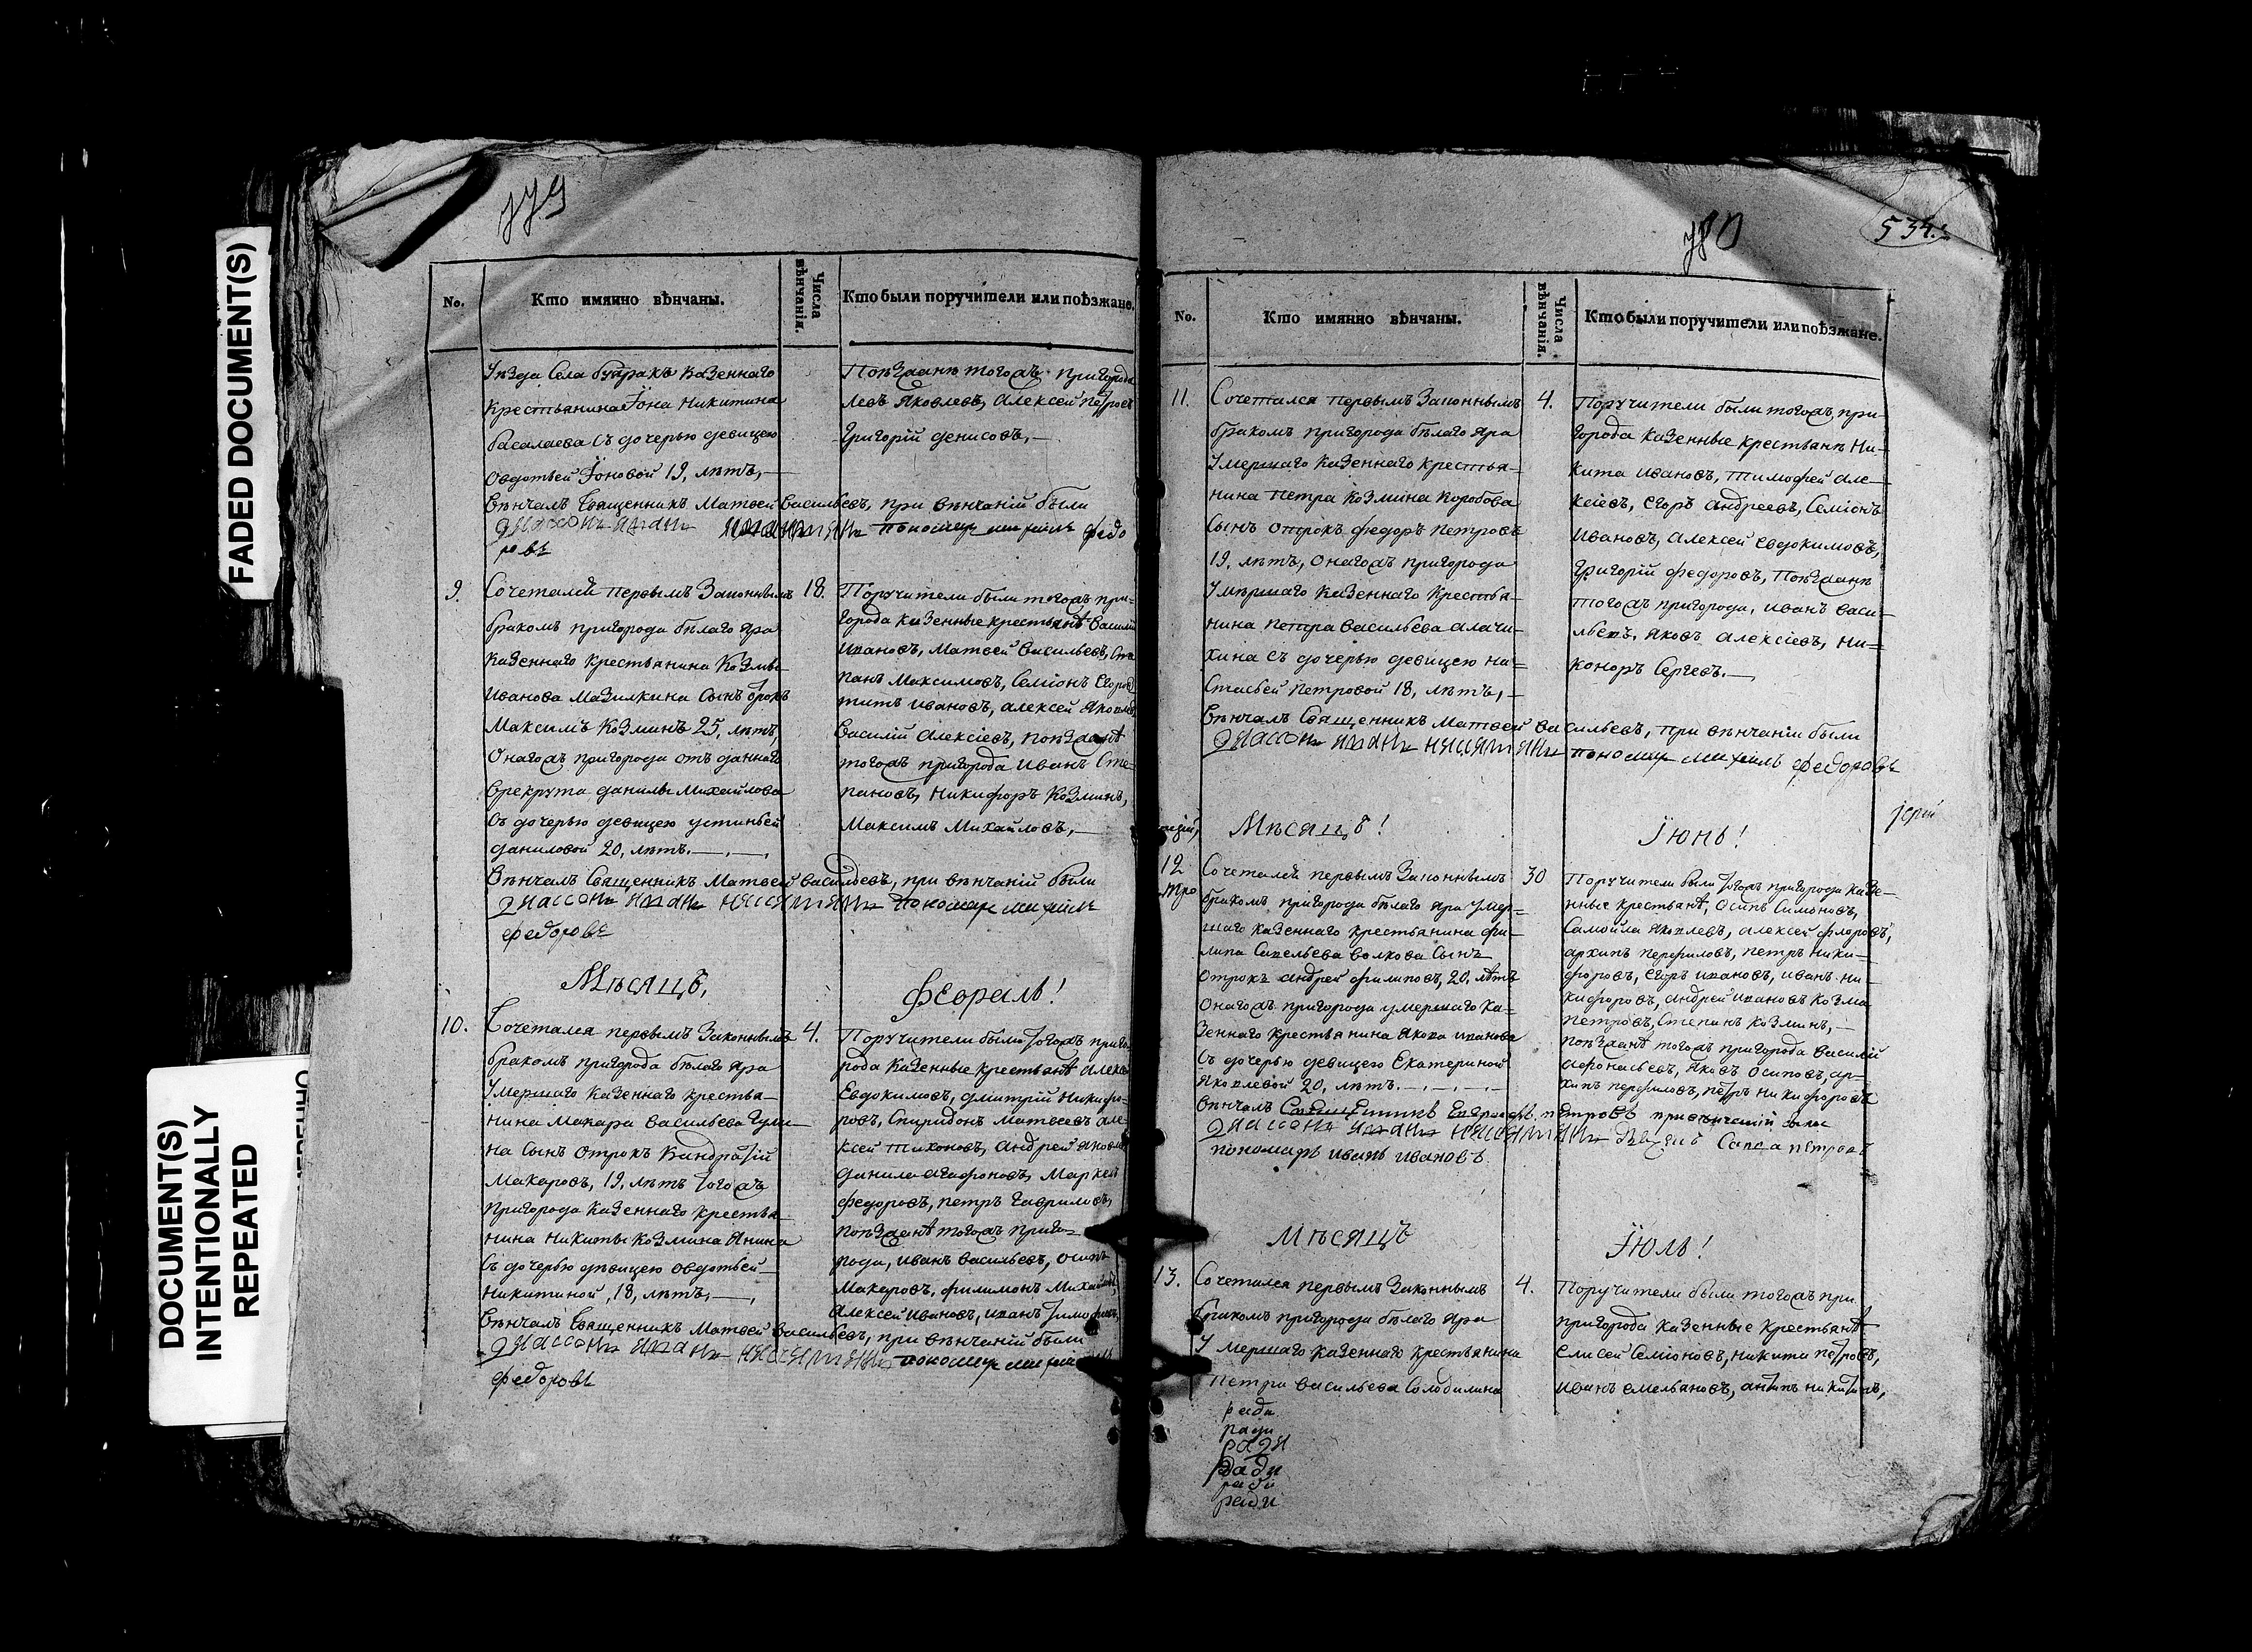 FADED DOCUMENT(S)
DOCUMENT(S)
INTENTIONALLY
REPEATED
779
No.
Кто имянно вѣнчаны.
Числа
вѣнчанія.
Кто были поручители или поѣзжане.
Уѣзда Села Казеннаго
крестьянина Їона Никитина
съ дочерью девицею
Овдотьей Їоновой 19, лѣтъ,
Поѣздане тогожъ пригорода
Левъ Яковлевъ, Алексей Петровъ
Григорій Денисовъ,
Вѣнчалъ Священникъ Матвей Васильевъ, при вѣнчаній были
пономарь михаилъ федо
ровъ
9.
Сочетался первымъ Законнымъ
бракомъ пригорода бѣлаго яра
казеннаго крестьянина Козмы
Иванова Мазилкина Сынъ отрокъ
Максимъ Козминъ 25, лѣтъ,
Онагожъ пригорода отъ даннаго
Врекрута данилы Михайлова
съ дочерью девицею устиньей
даниловой 20, лѣтъ.
18.
Поручители были тогожъ при-
города казенные крестьянѣ Василий
Ивановъ, Матвей Васильевъ, Сте
панъ Максимовъ, Семіонъ Егоров
титъ Ивановъ, алексей Яковлев
Василій Алексіевъ, поѣзданѣ
тогожъ пригорода Иванъ Сте-
пановъ, Никифоръ Козминъ,
Максимъ Михайловъ,
Вѣнчалъ Священникъ Матвей Васильевъ, при вѣнчаній были
пономарь михаилъ
федоровъ
Мѣсяцъ,
Февраль!
10.
Сочетался первымъ Законнымъ
бракомъ пригорода бѣлаго яра
Умершаго казеннаго крестья-
нина Макара Васильева Гули-
на Сынъ отрокъ Кандратій
Макаровъ, 19, лѣтъ тогожъ
пригорода казеннаго крестья-
нина Никиты Козмина Янина
съ дочерью дѣвицею Овдотьей
Никитиной, 18, лѣтъ,
4.
Поручители были тогожъ приго-
рода казенные крестьянѣ Алексе
Евдокимовъ, дмитрій Никифо-
ровъ, Спиридонъ Матвеевъ але-
ксей тихоновъ, андрей яковле
данила агафоновъ, Маркел
федоровъ, петръ Гавриловъ,
поѣзданѣ тогожъ приго-
рода, иванъ Васильевъ, осипъ
Макаровъ, филимонъ Михайловъ,
Алексей ивановъ, иванъ тимофеевъ,
Вѣнчалъ Священникъ Матвей Васильевъ, при вѣнчаній были
пономарь михаилъ
федоровъ
780
534.
No.
Кто имянно вѣнчаны.
Числа
вѣнчанія.
Кто были поручители или поѣзжане.
11.
Сочетался первымъ Законнымъ
бракомъ пригорода бѣлаго яра
Умершаго казеннаго крестья-
нина Петра Козмина Коробова
Сынъ отрокъ федоръ Петровъ
19, лѣтъ, онагожъ пригорода
Умершаго казеннаго крестья-
нина Петра Васильева Алачи-
хина съ дочерью девицею На-
стасьей Петровой 18, лѣтъ,
4.
Поручители были тогожъ при-
города казенные крестьянѣ Ни-
кита Ивановъ, тимофей але-
ксіевъ, Егоръ андреевъ, Семіонъ
Ивановъ, алексей Евдокимовъ,
Григорій федоровъ, Поѣзданѣ
тогожъ пригорода, иванъ Васи-
льевъ, яковъ алексіевъ, ни-
коноръ Сергеевъ.
Вѣнчалъ Священникъ Матвей Васильевъ, при вѣнчаніи были
пономарь михаилъ федоровъ
Мѣсяцъ!
Їюнь!
іерей
12
Сочетался первымъ Законнымъ
бракомъ пригорода бѣлаго яра умер-
шаго казеннаго крестьянина фи-
липа Савельева волкова Сынъ
отрокъ андрей филиповъ, 20, лѣтъ
онагожъ пригорода умершаго ка-
зеннаго крестьянина якова иванова
съ дочерью девицею Екатериной
яковлевой 20, лѣтъ.
30
Поручители были тогожъ пригорода казе-
нные крестьянѣ, Осипъ Симоновъ,
Самойла яковлевъ, алексей флоровъ,
архипъ перфиловъ, петръ ники-
форовъ, Егоръ ивановъ, иванъ ни-
кифоровъ, андрей ивановъ козма
петровъ, Степанъ козминъ,
поѣзданѣ тогожъ пригорода василій
афонасьевъ, яковъ осиповъ, ар-
хипъ перфиловъ, петръ никифоровъ
Вѣнчалъ Священникъ петровъ при вѣнчаній
Савва петровъ
пономарь иванъ ивановъ
Мѣсяцъ
Їюль!
13.
Сочетался первымъ Законнымъ
бракомъ пригорода бѣлаго яра
Умершаго казеннаго крестьянина
петра васильева Солодилина
4.
Поручители были тогожъ при
пригорода казенные крестьянѣ
елисей Семіоновъ, никита петровъ,
Иванъ емельяновъ, антипъ никитинъ,
ради
ради
ради
ради
ради
ради